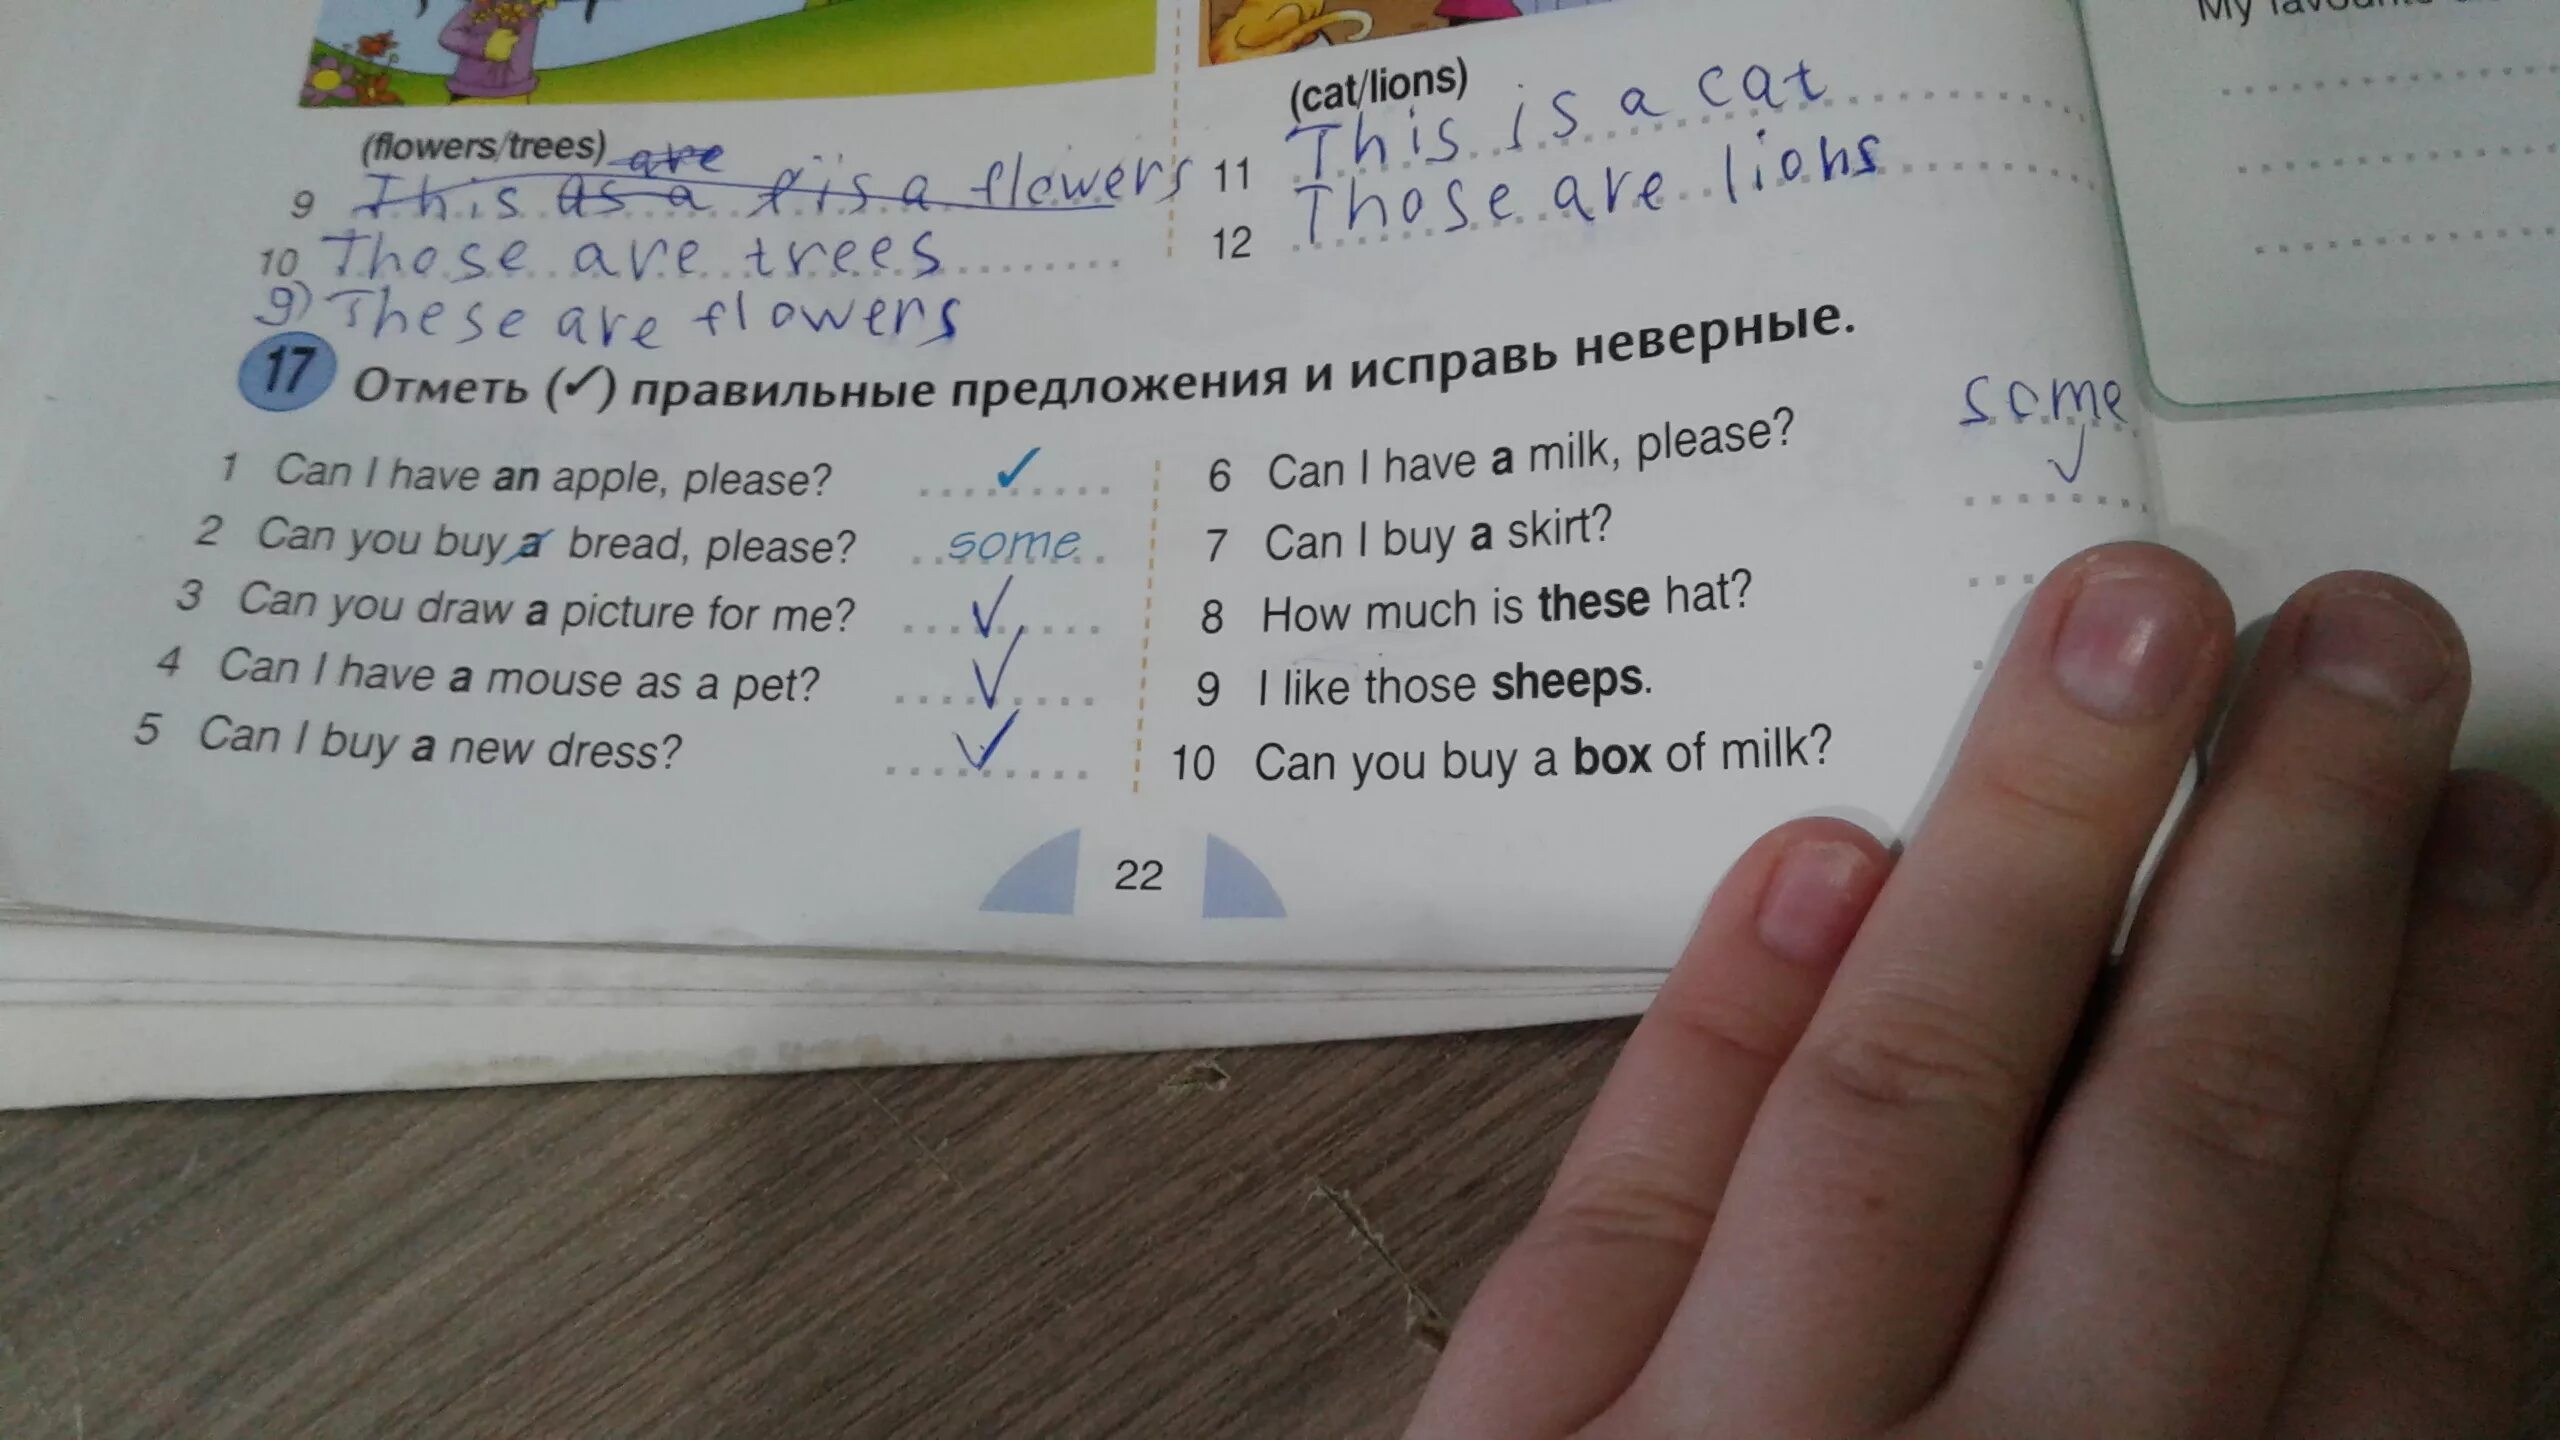 My
(flowers/trees)
are
9 This as a is a flowers
10 Those are trees
9) These are flowers
(cat/lions)
11 This is a cat
12 Those are lions
17 Отметь (✓) правильные предложения и исправь неверные.
1 Can I have an apple, please? ✓
2 Can you buy a bread, please? some
3 Can you draw a picture for me? ✓
4 Can I have a mouse as a pet? ✓
5 Can I buy a new dress? ✓
6 Can I have a milk, please? some
7 Can I buy a skirt? ✓
8 How much is these hat?
9 I like those sheeps.
10 Can you buy a box of milk?
22